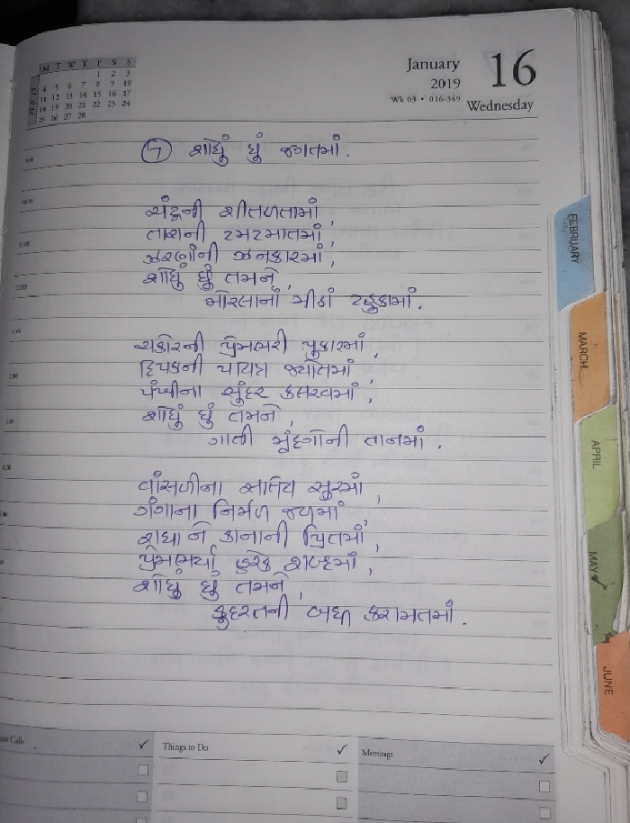 M T W T F S S
1 2 3
4 5 6 7 8 9 10
11 12 13 14 15 16 17
18 19 20 21 22 23 24
25 26 27 28
January
2019
16
Wk 03 • 016-349
Wednesday
૭ શોધું છું જગતમાં.
ચંદ્રની શીતળતામાં,
તારાની ટમટમાતમાં,
ઝરણાંની ઝનકારમાં,
શોધું છું તમને,
મોરલાનાં મીઠાં ટહુકામાં.
ચકોરની પ્રેમભરી પુકારમાં,
દિપકની પાવન જ્યોતમાં,
પંખીના સુંદર કલરવમાં,
શોધું છું તમને,
ગાતી મૃદંગોની તાનમાં.
વાંસળીના લલિત સુરમાં,
ગંગાના નિર્મળ જળમાં,
રાધા ને કાનાની પ્રિતમાં,
પ્રેમભર્યા દરેક શબ્દમાં,
શોધું છું તમને,
કુદરતની બધી કરામતમાં.
FEBRUARY
MARCH
APRIL
MAY
JUNE
Calls
Things to Do
Meetings